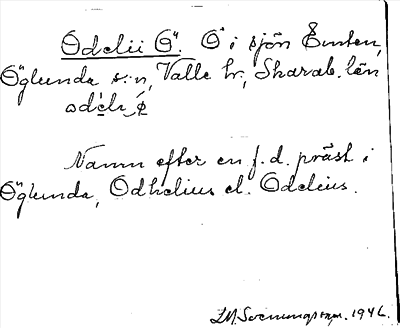 Odelii Ö. Ö i sjön Emten,
Öglunda s:n, Valle hr, Skarab. län
odèli ø̨
Namn efter en f. d. präst i
Öglunda, Odhelius el. Odelius.
1946.